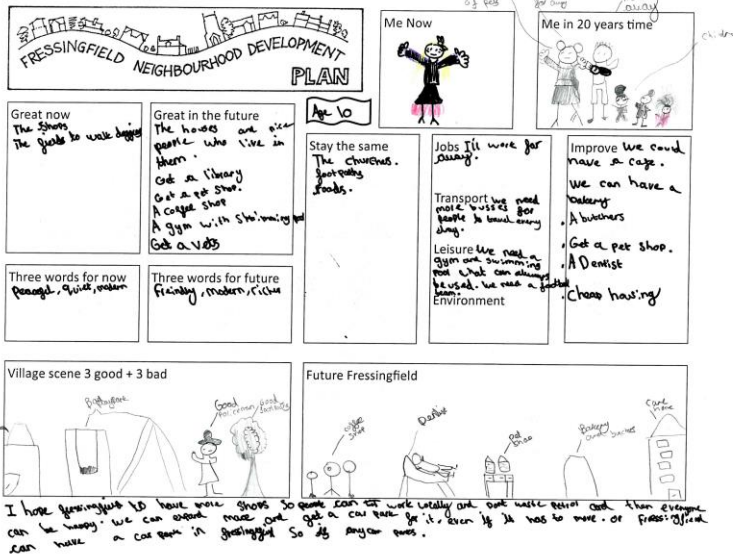 FRESSINGFIELD NEIGHBOURHOOD DEVELOPMENT
PLAN
Me Now
Me in 20 years time
away
Age 10
Great now
The shops
The fields to walk doggies
Great in the future
The houses and nice
people who live in
them.
Get a library
Get a pet shop.
A coffee shop
A gym with swimming pool
Get a vets
Stay the same
The churches.
footpaths
roads.
Jobs I'll work far
away.
Transport we need
more busses for
people to travel every
day.
Leisure We need a
gym and swimming
pool what can always
be used. We need a football
team.
Environment
Improve we could
have a cafe.
We can have a
bakery
. A butchers
. Get a pet shop.
. A Dentist
. Cheap housing
Three words for now
peacefull, quiet, modern
Three words for future
freindly, modern, richer
Village scene 3 good + 3 bad
Bad
Good
Future Fressingfield
coffee shop
Dentist
pet shop
Bakery
and butchers
Care
home
I hope fressingfield to have more shops so people can work locally and dont waste petrol and then everyone
can be happy. We can expand more and get a car park for it, even if it has to move. or Fressingfield
can have a car park in fressingfield so